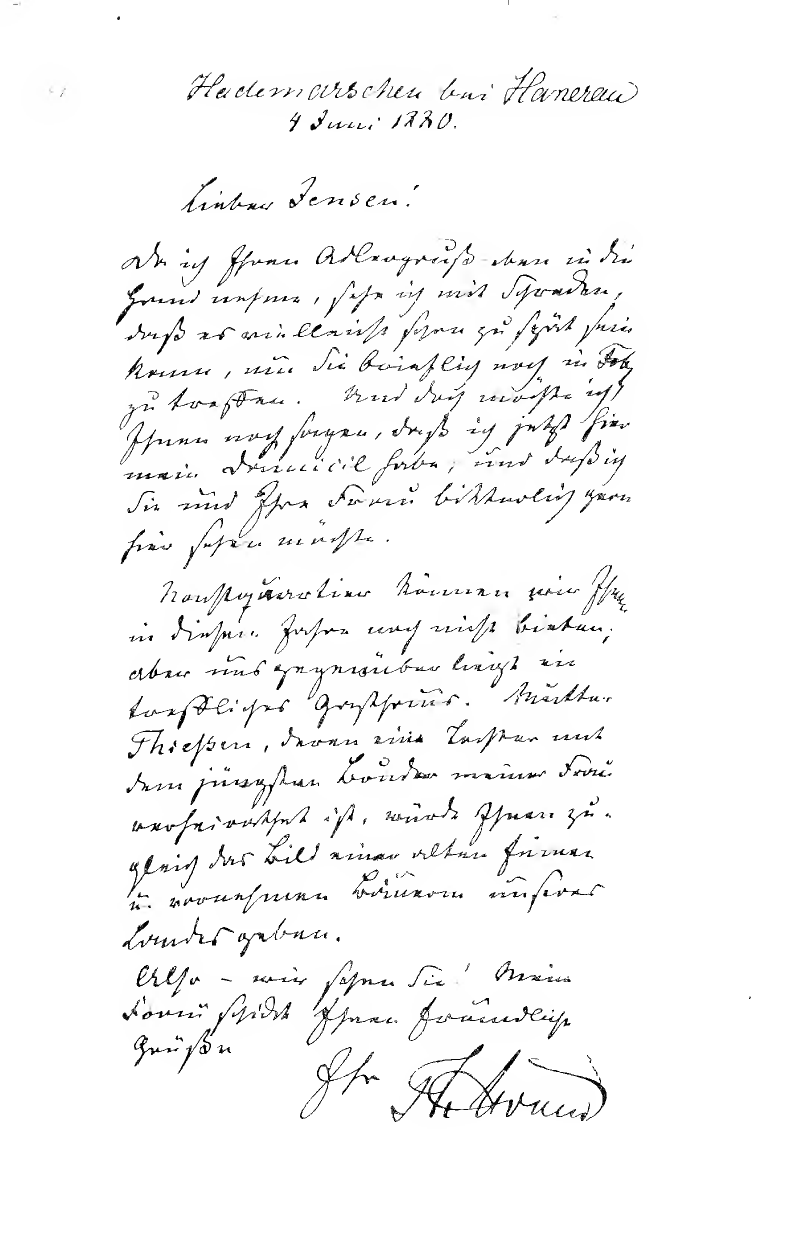 Hademarschen bei Hanerau
4 Juni 1880.
Lieber Jensen!
Da ich Ihren Adlergruß eben in die
Hand nehme, sehe ich mit Schrecken,
daß es vielleicht schon zu spät sein
kann, um Sie brieflich noch in
zu treffen. Und doch möchte ich
Ihnen noch sagen, daß ich jetzt hier
mein Domicil habe, und daß ich
Sie und Ihre Frau bitterlich gern
hier sehen möchte.
Nachtquartier können wir Ihnen
in diesem Jahre noch nicht bieten;
aber uns gegenüber liegt ein
treffliches Gasthaus. Mutter
Thießen, deren eine Tochter mit
dem jüngsten Bruder meiner Frau
verheirathet ist, würde Ihnen zu-
gleich das Bild einer alten feinen
u. vornehmen Bäuerin unseres
Landes geben.
Also – wir sehen Sie! Meine
Frau schickt Ihnen freundliche
Grüße
Ihr ThStorm